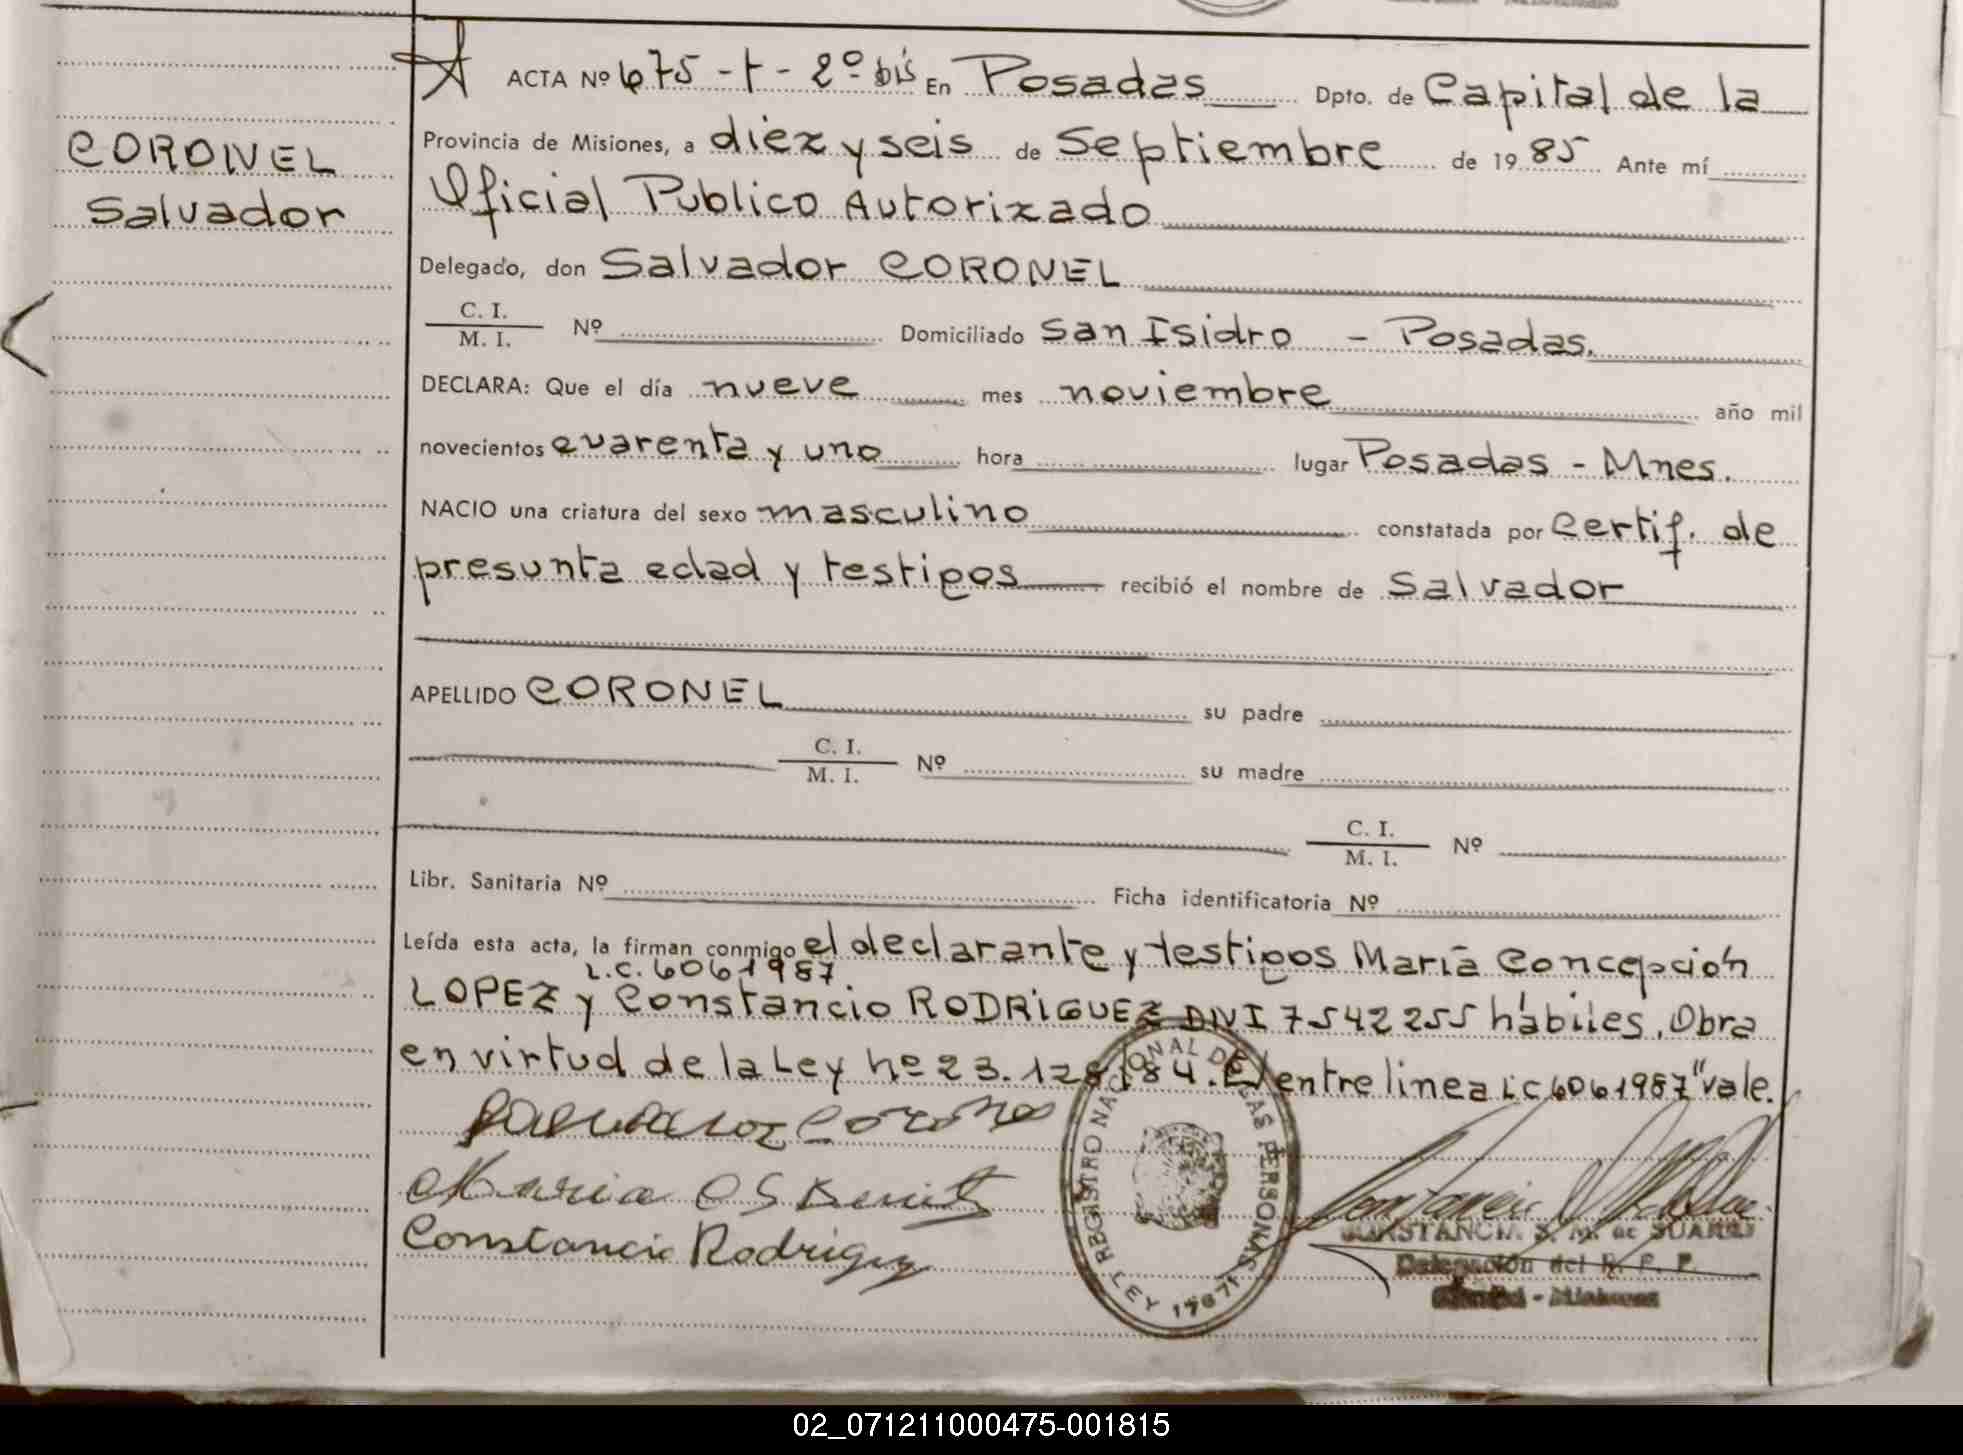 CORONEL
Salvador
ACTA Nº 675 - t - 2º bis En Posadas Dpto. de Capital de la
Provincia de Misiones, a diez y seis de Septiembre de 1985 Ante mí
Oficial Publico Autorizado
Delegado, don Salvador CORONEL
C. I.
M. I. Nº Domiciliado San Isidro - Posadas.
DECLARA: Que el día nueve mes noviembre año mil
novecientos cuarenta y uno hora lugar Posadas - Mnes.
NACIO una criatura del sexo masculino constatada por Certif. de
presunta edad y testigos recibió el nombre de Salvador
APELLIDO CORONEL su padre
C. I.
M. I. Nº su madre
C. I.
M. I. Nº
Libr. Sanitaria Nº Ficha identificatoria Nº
Leída esta acta, la firman conmigo el declarante y testigos María Concepción
L.C. 6061987
LOPEZ y Constancio RODRIGUEZ DNI 7542255 hábiles. Obra
en virtud de la Ley nº 23.128/84. E/ entre linea LC 6061987" vale.
Salvador Coronel
Maria
Constancio Rodriguez
REGISTRO NACIONAL DE LAS PERSONAS
LEY 17671
CONSTANCIA S. M. de SUAREZ
Delegación del R. P. P.
02_071211000475-001815